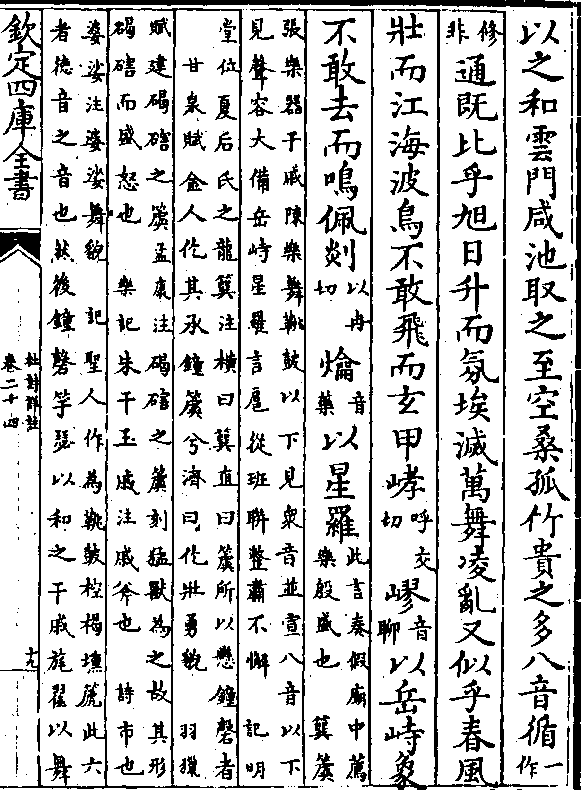 以之和雲門咸池取之至空桑孤竹貴之多八音循一作
修非通既比乎旭日升而氛埃滅萬舞凌亂又似乎春風
壯而江海波鳥不敢飛而玄甲崤呼交切嵺音聊以岳峙象
不敢去而鳴佩剡以冉切爚音藥以星羅此言奏假廟中薦樂殷盛也 簨簴
張樂器干戚陳樂舞鞉鼓以下見衆音並宣八音以下
見聲容大備岳峙星羅言扈從班聯整肅不懈 記明
堂位夏后氏之龍簨注橫曰簨直曰簴所以懸鐘磬者
甘泉賦金人仡其承鐘簴兮濟曰仡壯勇貌 羽獵
賦建碣磍之簴孟康注碣磍之簴刻猛獸為之故其形
碣磍而盛怒也 樂記朱干玉戚注戚斧也 詩市也
婆娑注婆娑舞貌 記聖人作為鞉鼓椌楬壎箎此六
者德音之音也然後鐘磬竽瑟以和之干戚旄翟以舞
欽定四庫全書
杜詩詳註
卷二十四
十九